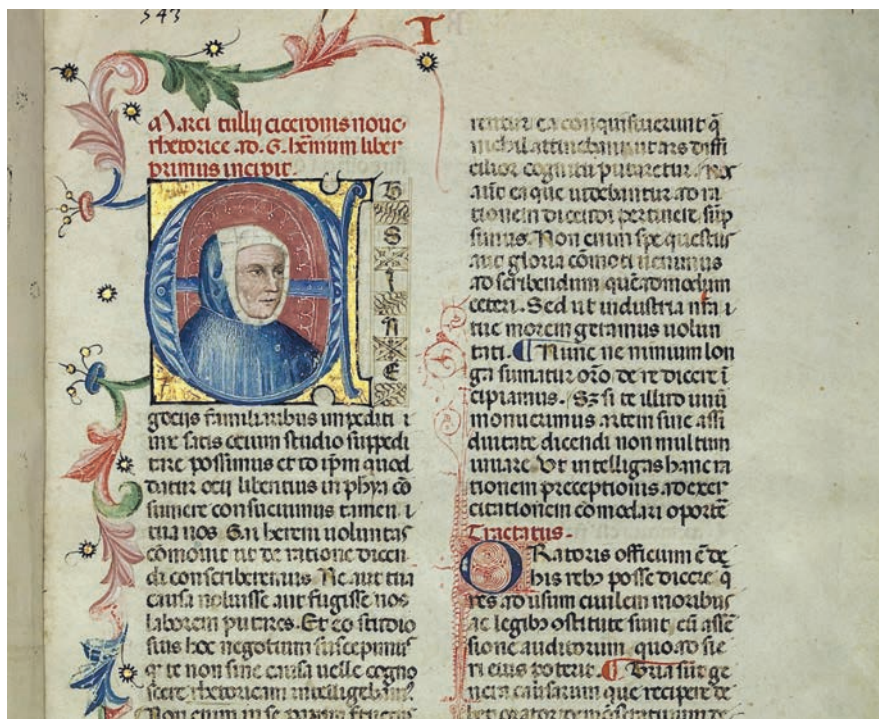 543
T
Marci tullij ciceronis noue
rhetorice ad. G. hēnium liber
primus incipit.
E T
S
I
N
E
gociis familiaribus impediti
uix satis ocium studio suppedi
tare possimus et id ip̄m quod
datur ocij libentius in ph̄ia cō
sumere consueuimus tamen. i
tua nos. Gai herem uoluntas
cōmouit ut de ratione dicen
di conscriberemus. Ne aut tua
causa noluisse aut fugisse nos
laborem putares. Et eo studio
sius hoc negotium suscepimus
q te non sine causa uelle cogno
scere rhetoricam intelligebam
Non enim in se parum fructus
ea conquisiuerunt q̄
nichil attinebant ut ars diffi
cilior cognitu putaretur. Nos
aūt ea que uidebantur ad ra
tionem dicendi pertinere sūp
simus. Non enim spe questus
aut gloria cōmoti uenimus
ad scribendum quēadmodum
ceteri. Sed ut industria nr̄a
tue morem geramus uolun
tati. Nunc ne nimium lon
ga sumatur or̄o de re dicere ī
cipiamus. Sz si te illud unū
monuerimus artem sine assi
duitate dicendi non multum
iuuare. Vt intelligas hanc ra
tionem preceptionis ad exer
citationem cōmodari oportē
Tractatus.
ORatoris officium ē de
his rebꝫ posse dicere q̄
res ad usum ciuilem moribus
ac legibꝫ cōstitute sunt, cū assē
sione auditorum, quoad fie
ri eius poterit. Tria sūt ge
nera causarum que recipere de
bet orator demōstratiuum de